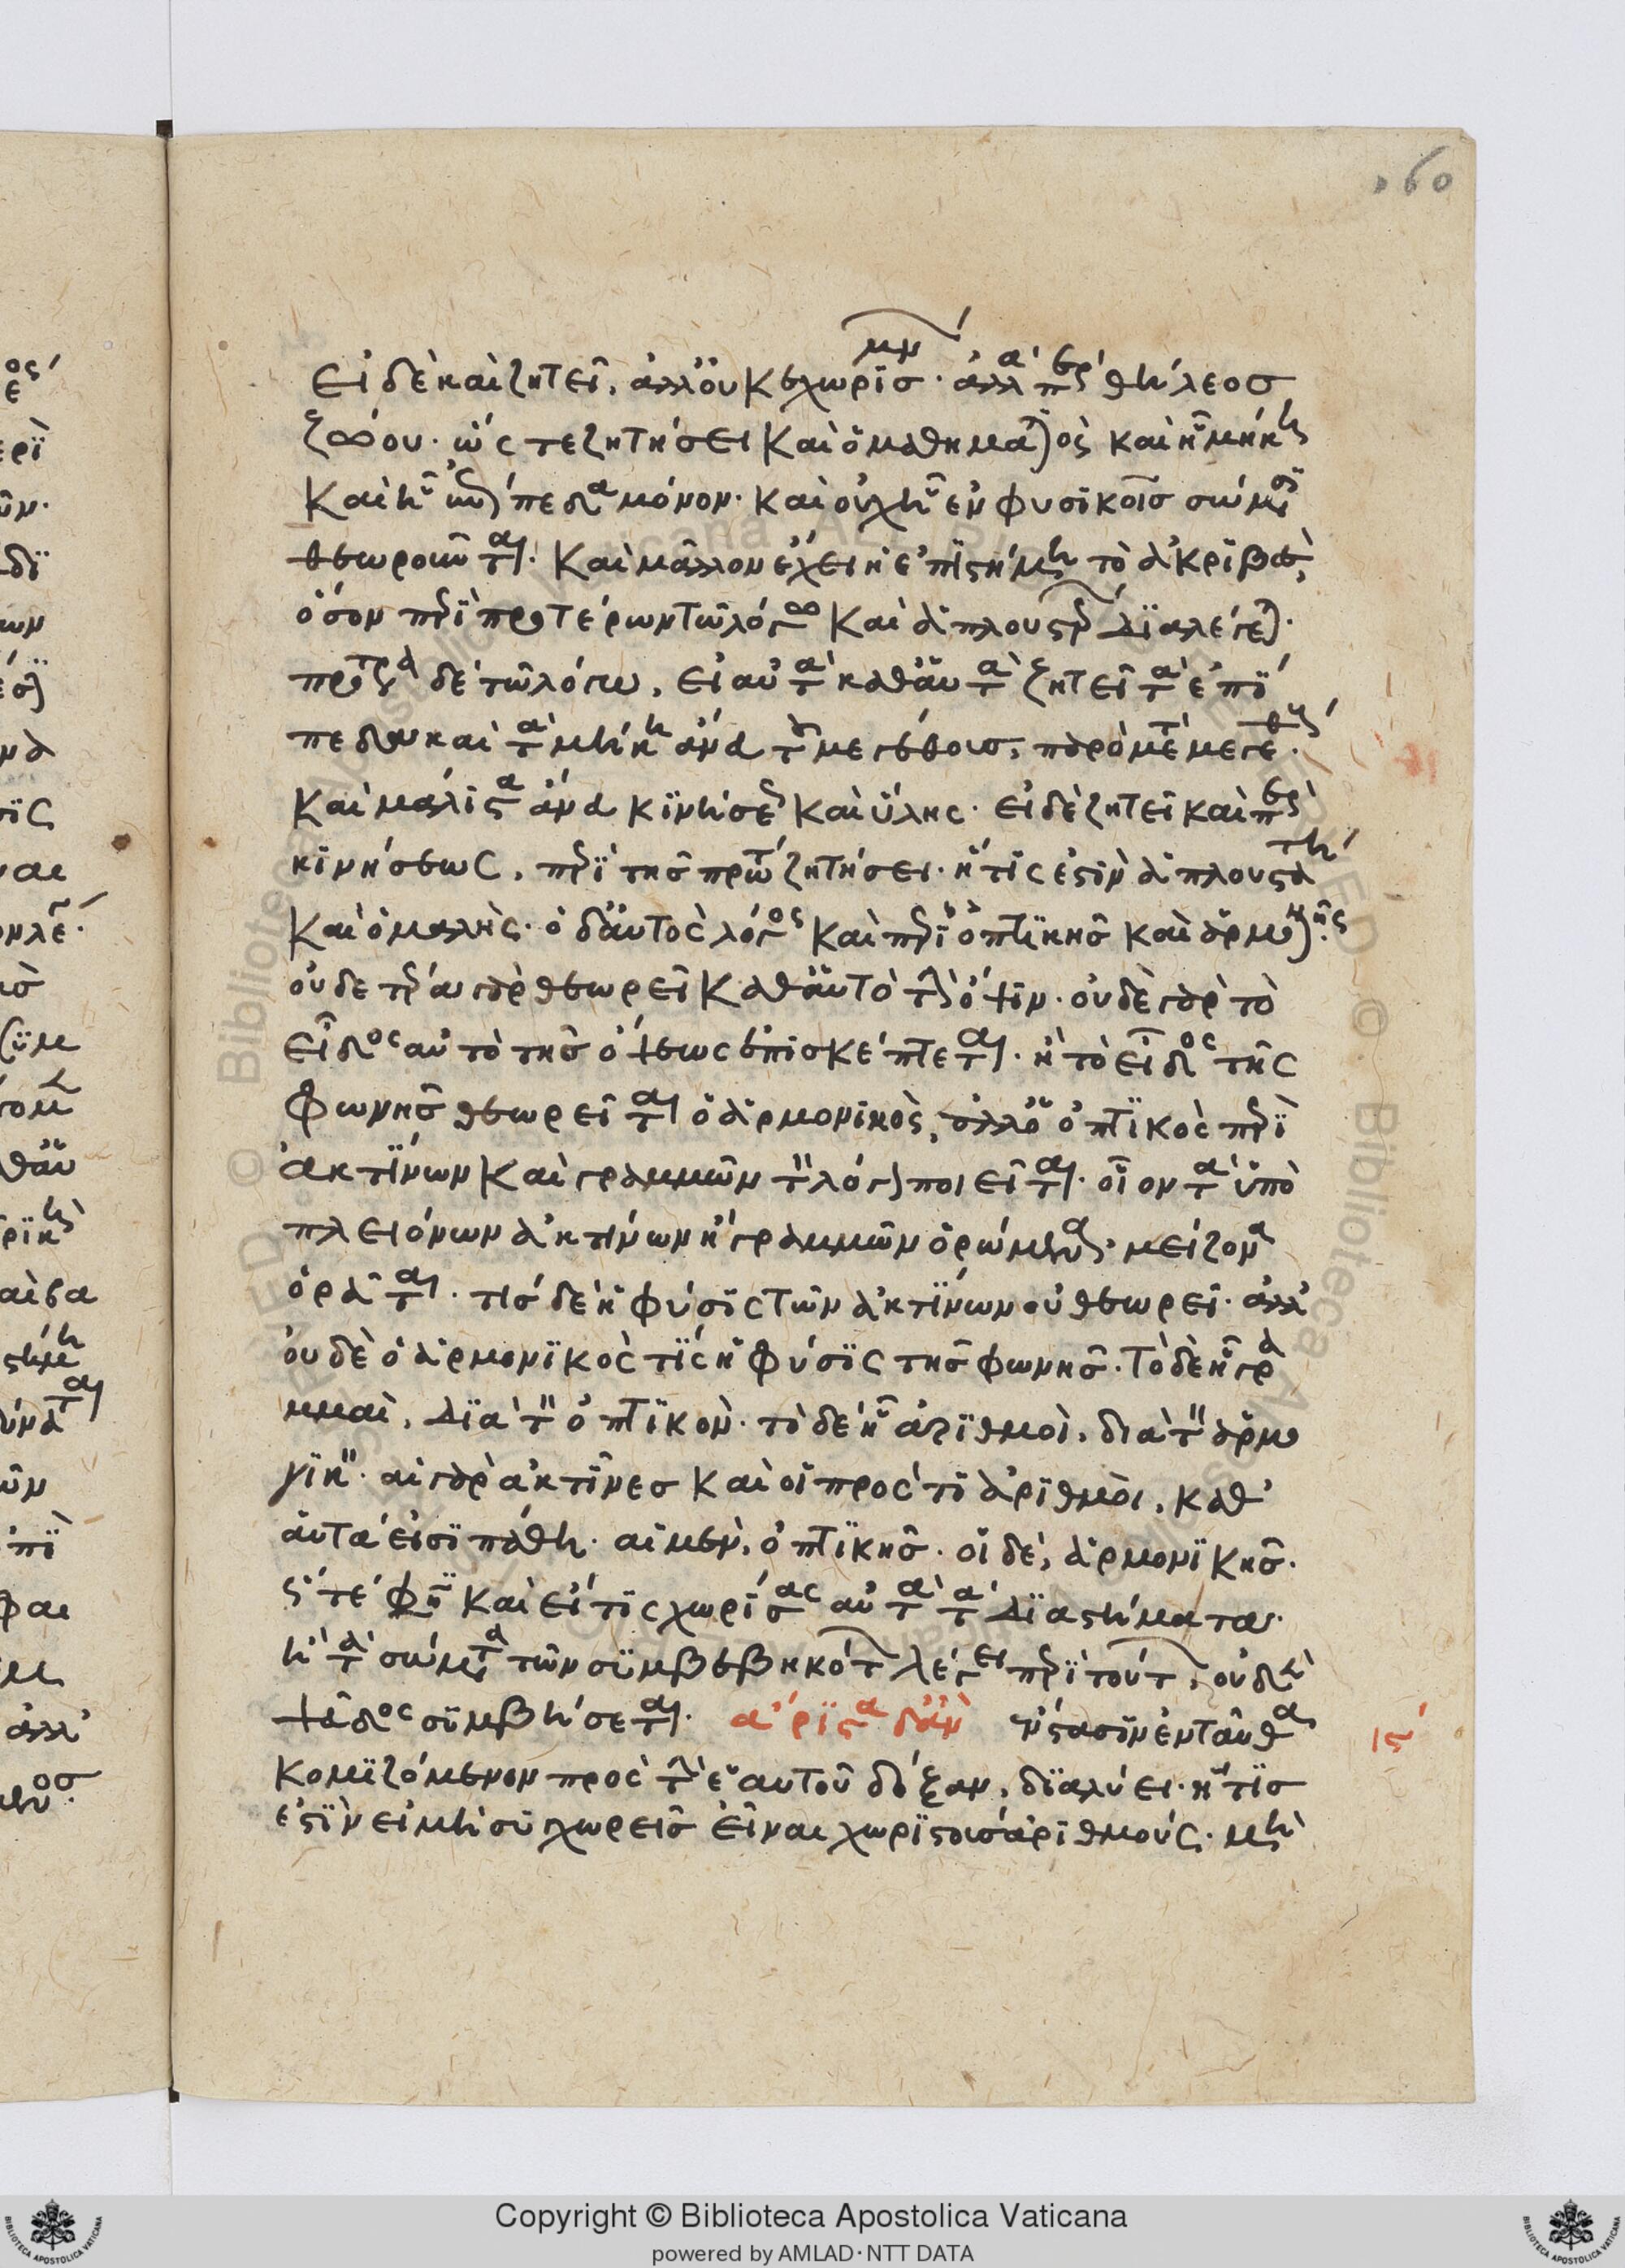 260
εἰ δὲ καὶ ζητεῖ, ἀλλ' οὐ κεχωρισμένως· ἀλλὰ περὶ θήλεος
ζώου· ὥστε ζητήσει καὶ ὁ μαθηματικὸς καὶ ᾗ μήκη
καὶ ᾗ ἐπίπεδα μόνον· καὶ οὐχ ᾗ ἐν φυσικοῖς σώμασι
θεωροῦνται· καὶ μᾶλλον ἔχει ἡ ἐπιστήμη τὸ ἀκριβὲς,
ὅσον περὶ προτέρων τῷ λόγῳ καὶ ἁπλουστέρων διαλέγεται·
πρότερα δὲ τῷ λόγῳ, εἰ αὐτὰ καθ' αὑτὰ ζητεῖ τὰ ἐπί
πεδα καὶ τὰ μήκη ἄνευ τοῦ μεγέθους, παρὸ μετὰ μεγέθους·
καὶ μάλιστα ἄνευ κινήσεως καὶ ὕλης· εἰ δὲ ζητεῖ καὶ περὶ
κινήσεως, περὶ τῆς πρώτης ζητήσει· ἥτις ἐστὶν ἁπλουστάτη
καὶ ὁμαλής· ὁ δ' αὐτὸς λόγος καὶ περὶ ὀπτικῆς καὶ ἁρμονικῆς·
οὐδετέρα γὰρ θεωρεῖ καθ' αὑτὸ τὴν ὄψιν· οὐδὲ γὰρ τὸ
εἶδος αὐτὸ τῆς ὄψεως ἐπισκέπτεται· ἢ τὸ εἶδος τῆς
φωνῆς θεωρεῖται ὁ ἁρμονικὸς, ἀλλ' ὁ ὀπτικὸς περὶ
ἀκτίνων καὶ γραμμῶν τὸν λόγον ποιεῖται· οἷον τὰ ὑπὸ
πλειόνων ἀκτίνων ἢ γραμμῶν ὁρώμενα· μείζονα
ὁρᾶται· τίς δὲ ἡ φύσις τῶν ἀκτίνων οὐ θεωρεῖ· ἀλλ'
οὐδὲ ὁ ἁρμονικὸς τίς ἡ φύσις τῆς φωνῆς· τὸ δὲ ᾗ γρα
μμαὶ, διὰ τὸν ὀπτικὸν· τὸ δὲ ᾗ ἀριθμοὶ, διὰ τὸν ἁρμο
νικόν· αἱ γὰρ ἀκτῖνες καὶ οἱ πρός τι ἀριθμοὶ, καθ'
αὑτά εἰσι πάθη· αἱ μὲν, ὀπτικῆς· οἱ δὲ, ἁρμονικῆς·
καὶ εἴ τις χωρίσας αὐτὰ τὰ διαστήματα·
ἢ τὰ σώματα τῶν συμβεβηκότων λέγει περὶ τούτων, οὐδὲν
ψεῦδος συμβήσεται· ἄριστα δ' ἂν ἔνστασιν ἐνταῦθα
ις
κομιζόμενον πρὸς τὴν ἑαυτοῦ δόξαν, διαλύει· ἥτις
ἐστὶν εἰ μὴ συγχωρεῖς εἶναι χωριστοὺς ἀριθμούς· μὴ
Copyright © Biblioteca Apostolica Vaticana
powered by AMLAD·NTT DATA